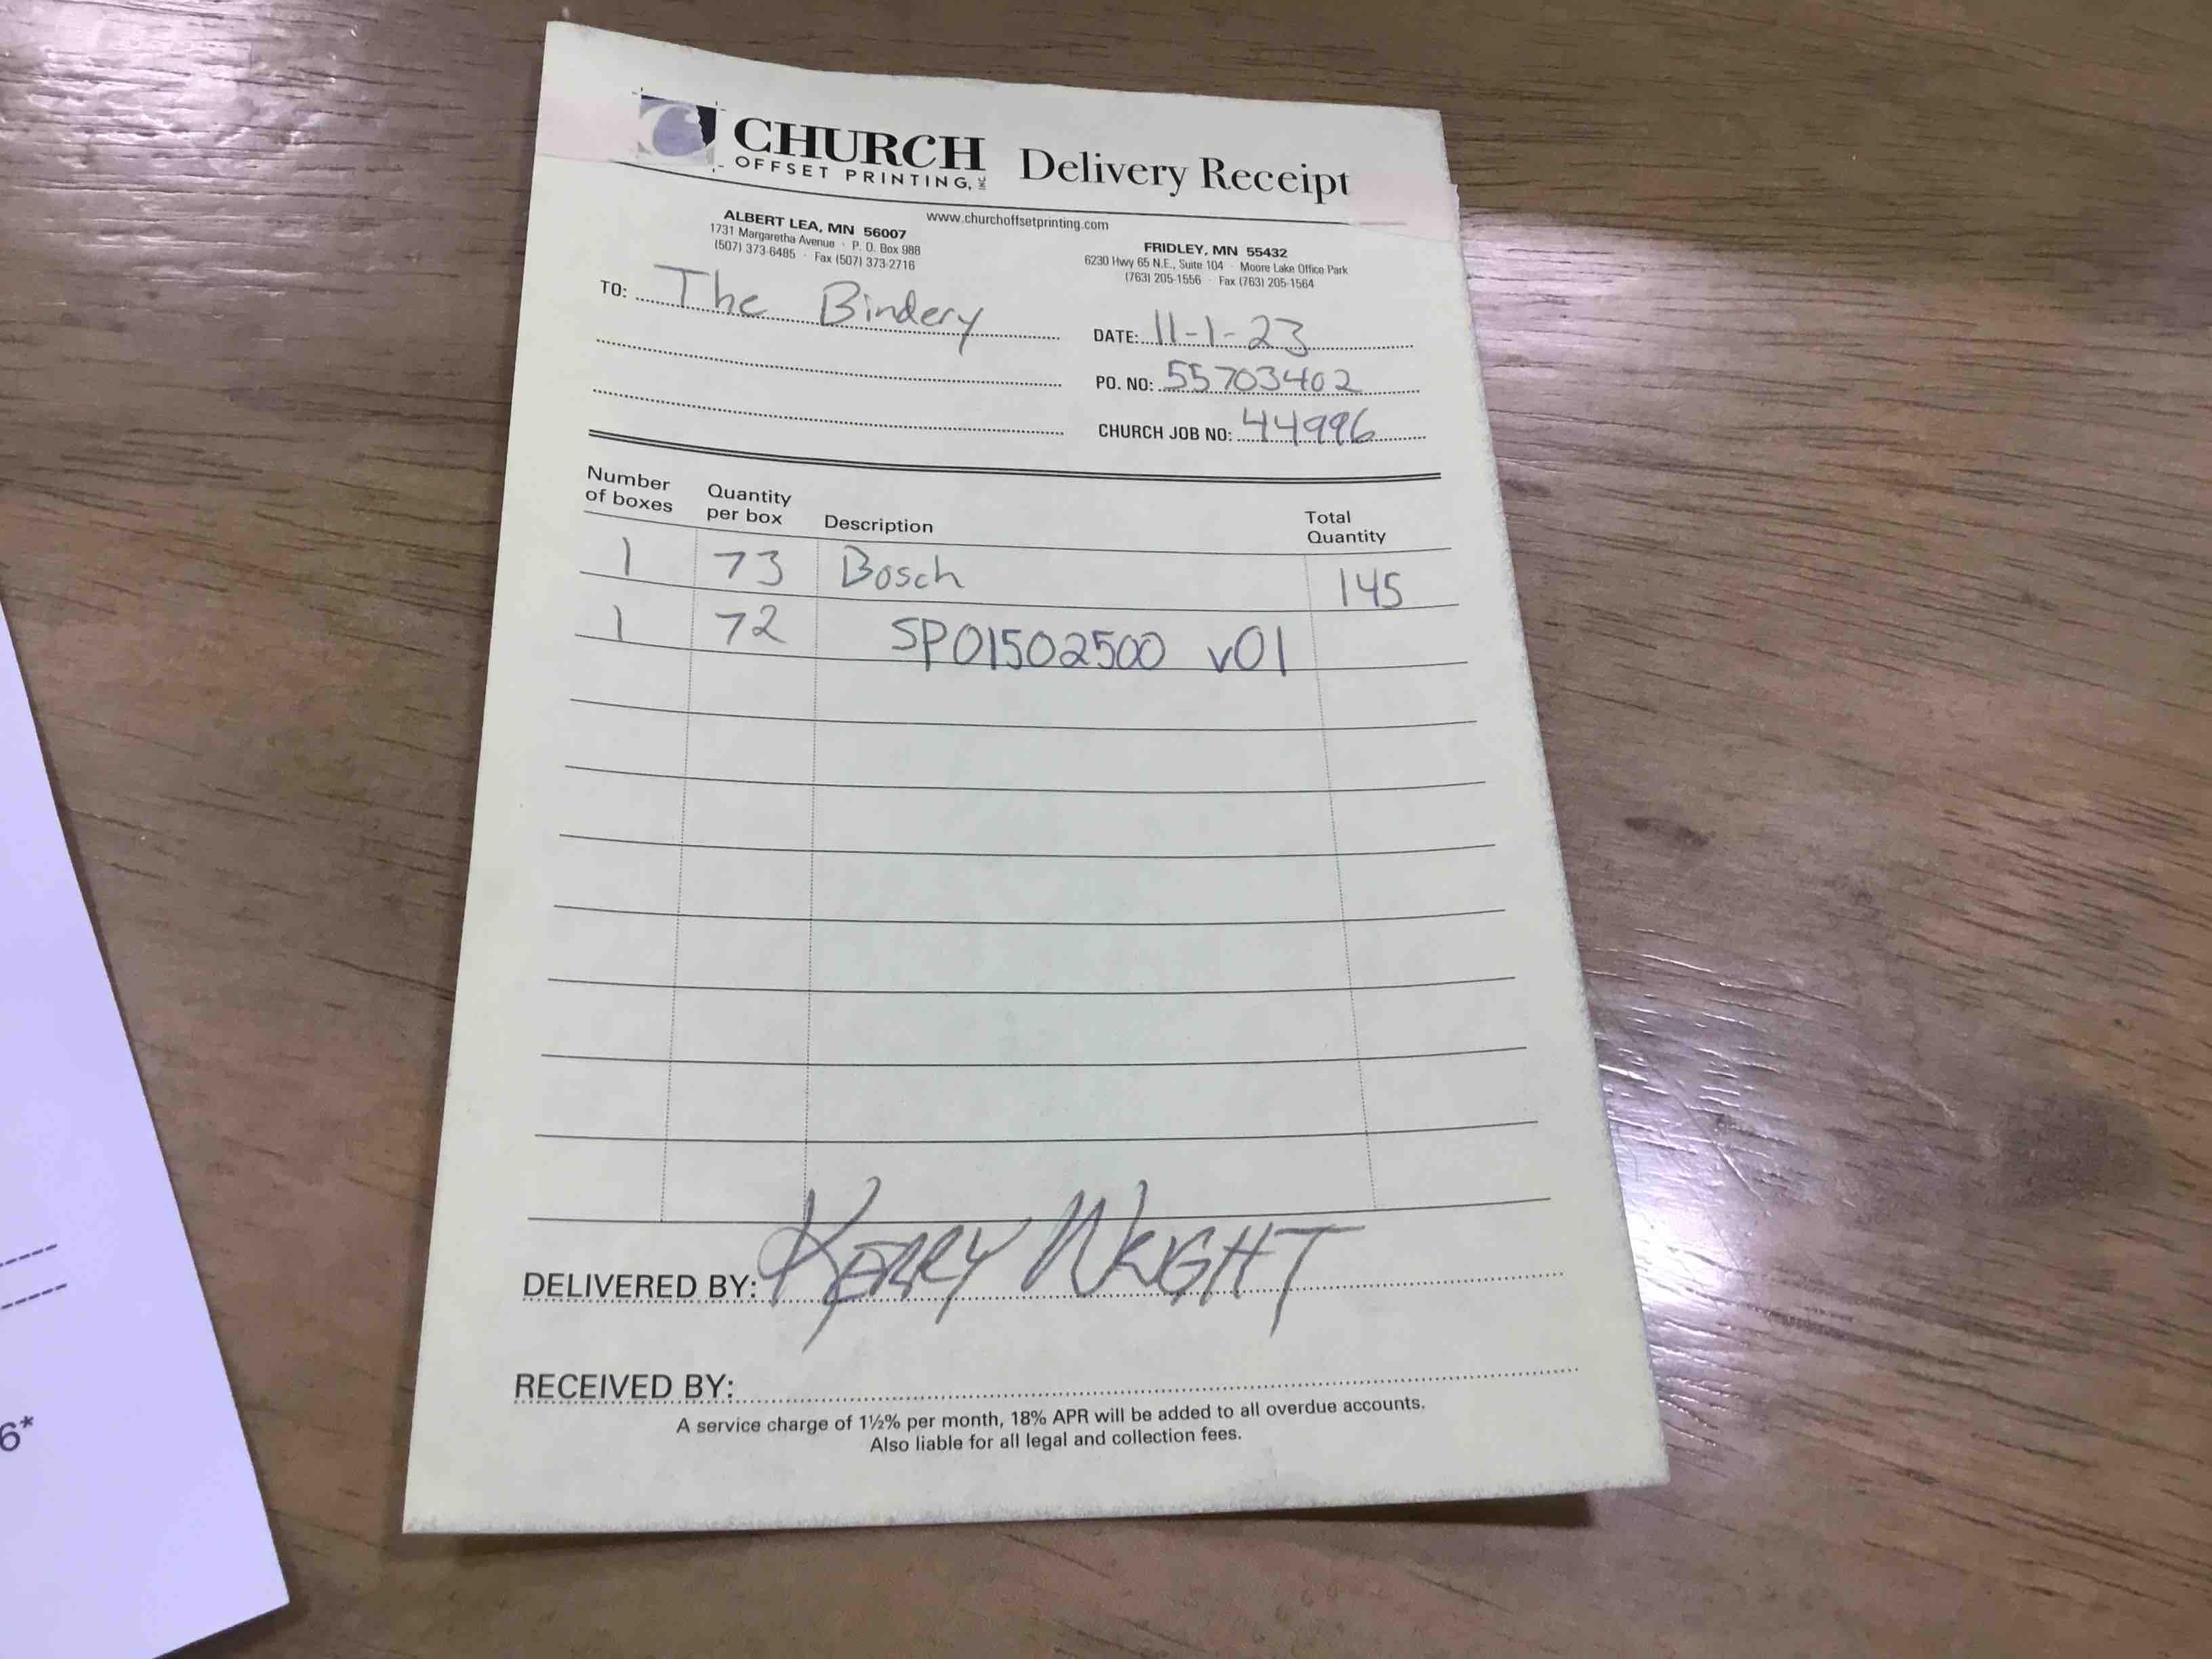 CHURCH
OFFSET PRINTING, INC
Delivery Receipt
www.churchoffsetprinting.com
ALBERT LEA, MN 56007
1731 Margaretha Avenue · P. O. Box 988
(507) 373-6485 · Fax (507) 373-2716
FRIDLEY, MN 55432
6230 Hwy 65 N.E., Suite 104 · Moore Lake Office Park
(763) 205-1556 · Fax (763) 205-1564
TO: The Bindery
DATE: 11-1-23
PO. NO: 55703402
CHURCH JOB NO: 44996
Number of boxes Quantity per box Description Total Quantity
1 73 Bosch 145
1 72 SP01502500 v01
DELIVERED BY: KERRY WRIGHT
RECEIVED BY:
A service charge of 1½% per month, 18% APR will be added to all overdue accounts.
Also liable for all legal and collection fees.
6*